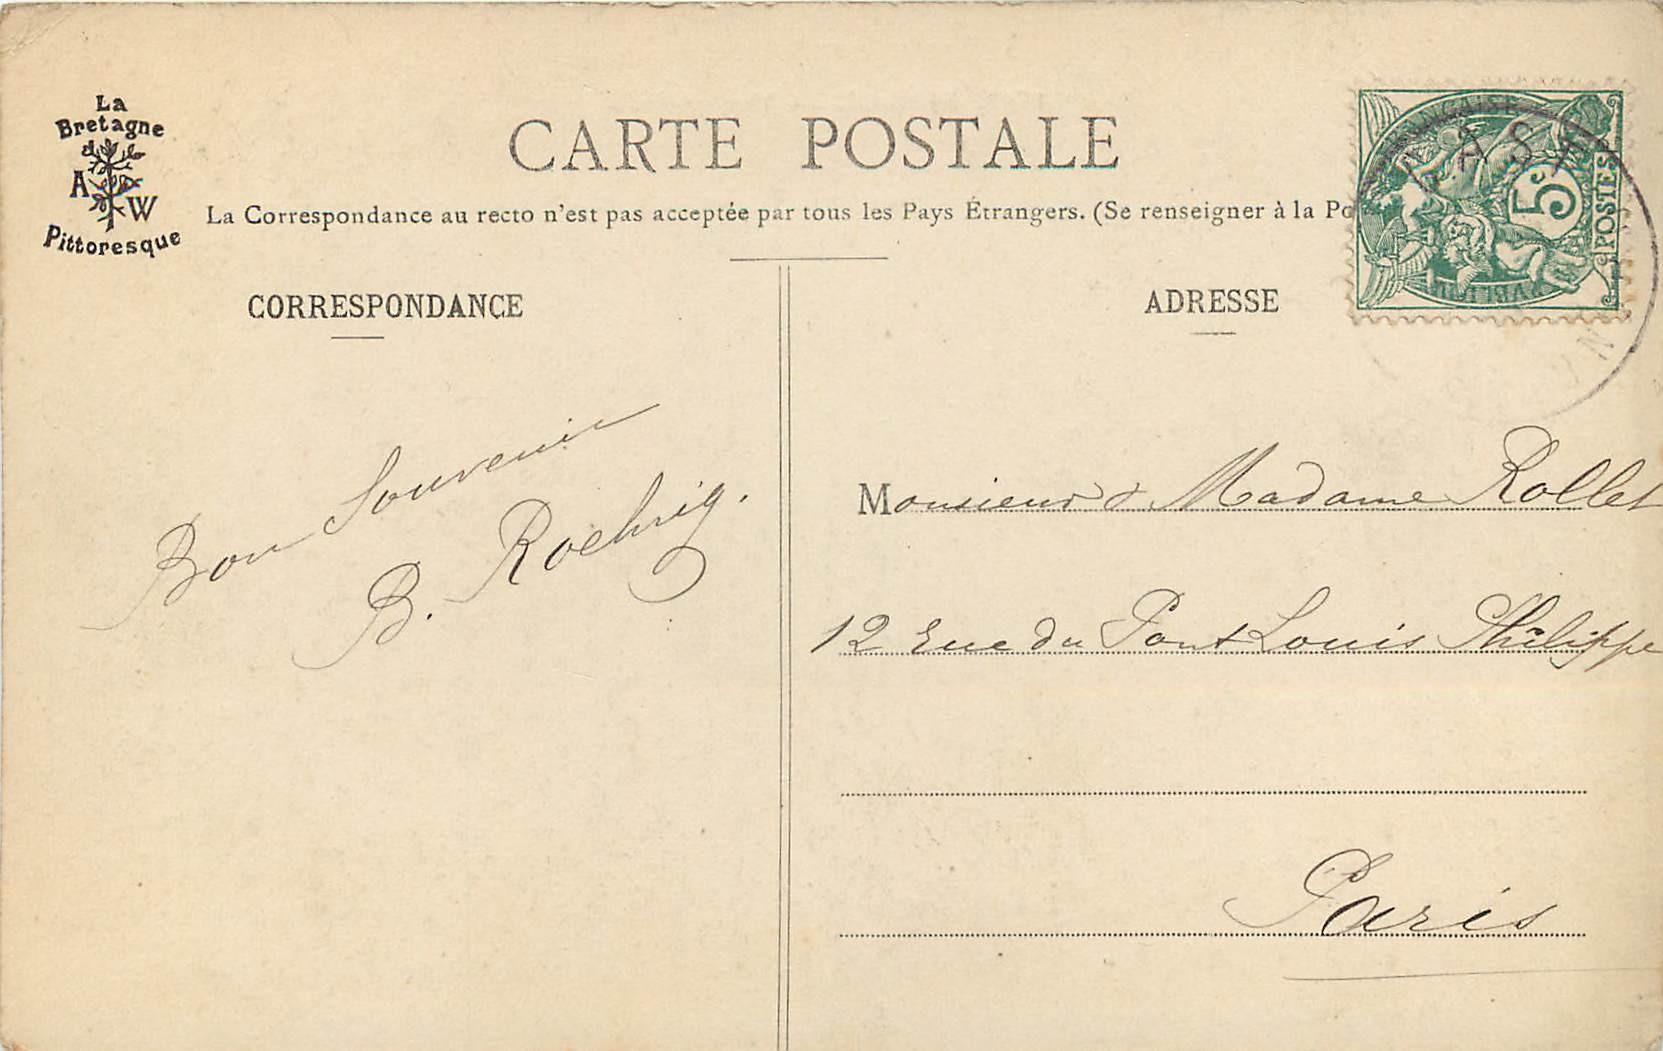 La
Bretagne
A
W
Pittoresque
CARTE POSTALE
La Correspondance au recto n'est pas acceptée par tous les Pays Étrangers. (Se renseigner à la Po
5c
POSTES
CORRESPONDANCE
ADRESSE
Bon Souvenir
B. Roehrig.
Monsieur & Madame Rollet
12 rue du Pont Louis Philippe
Paris